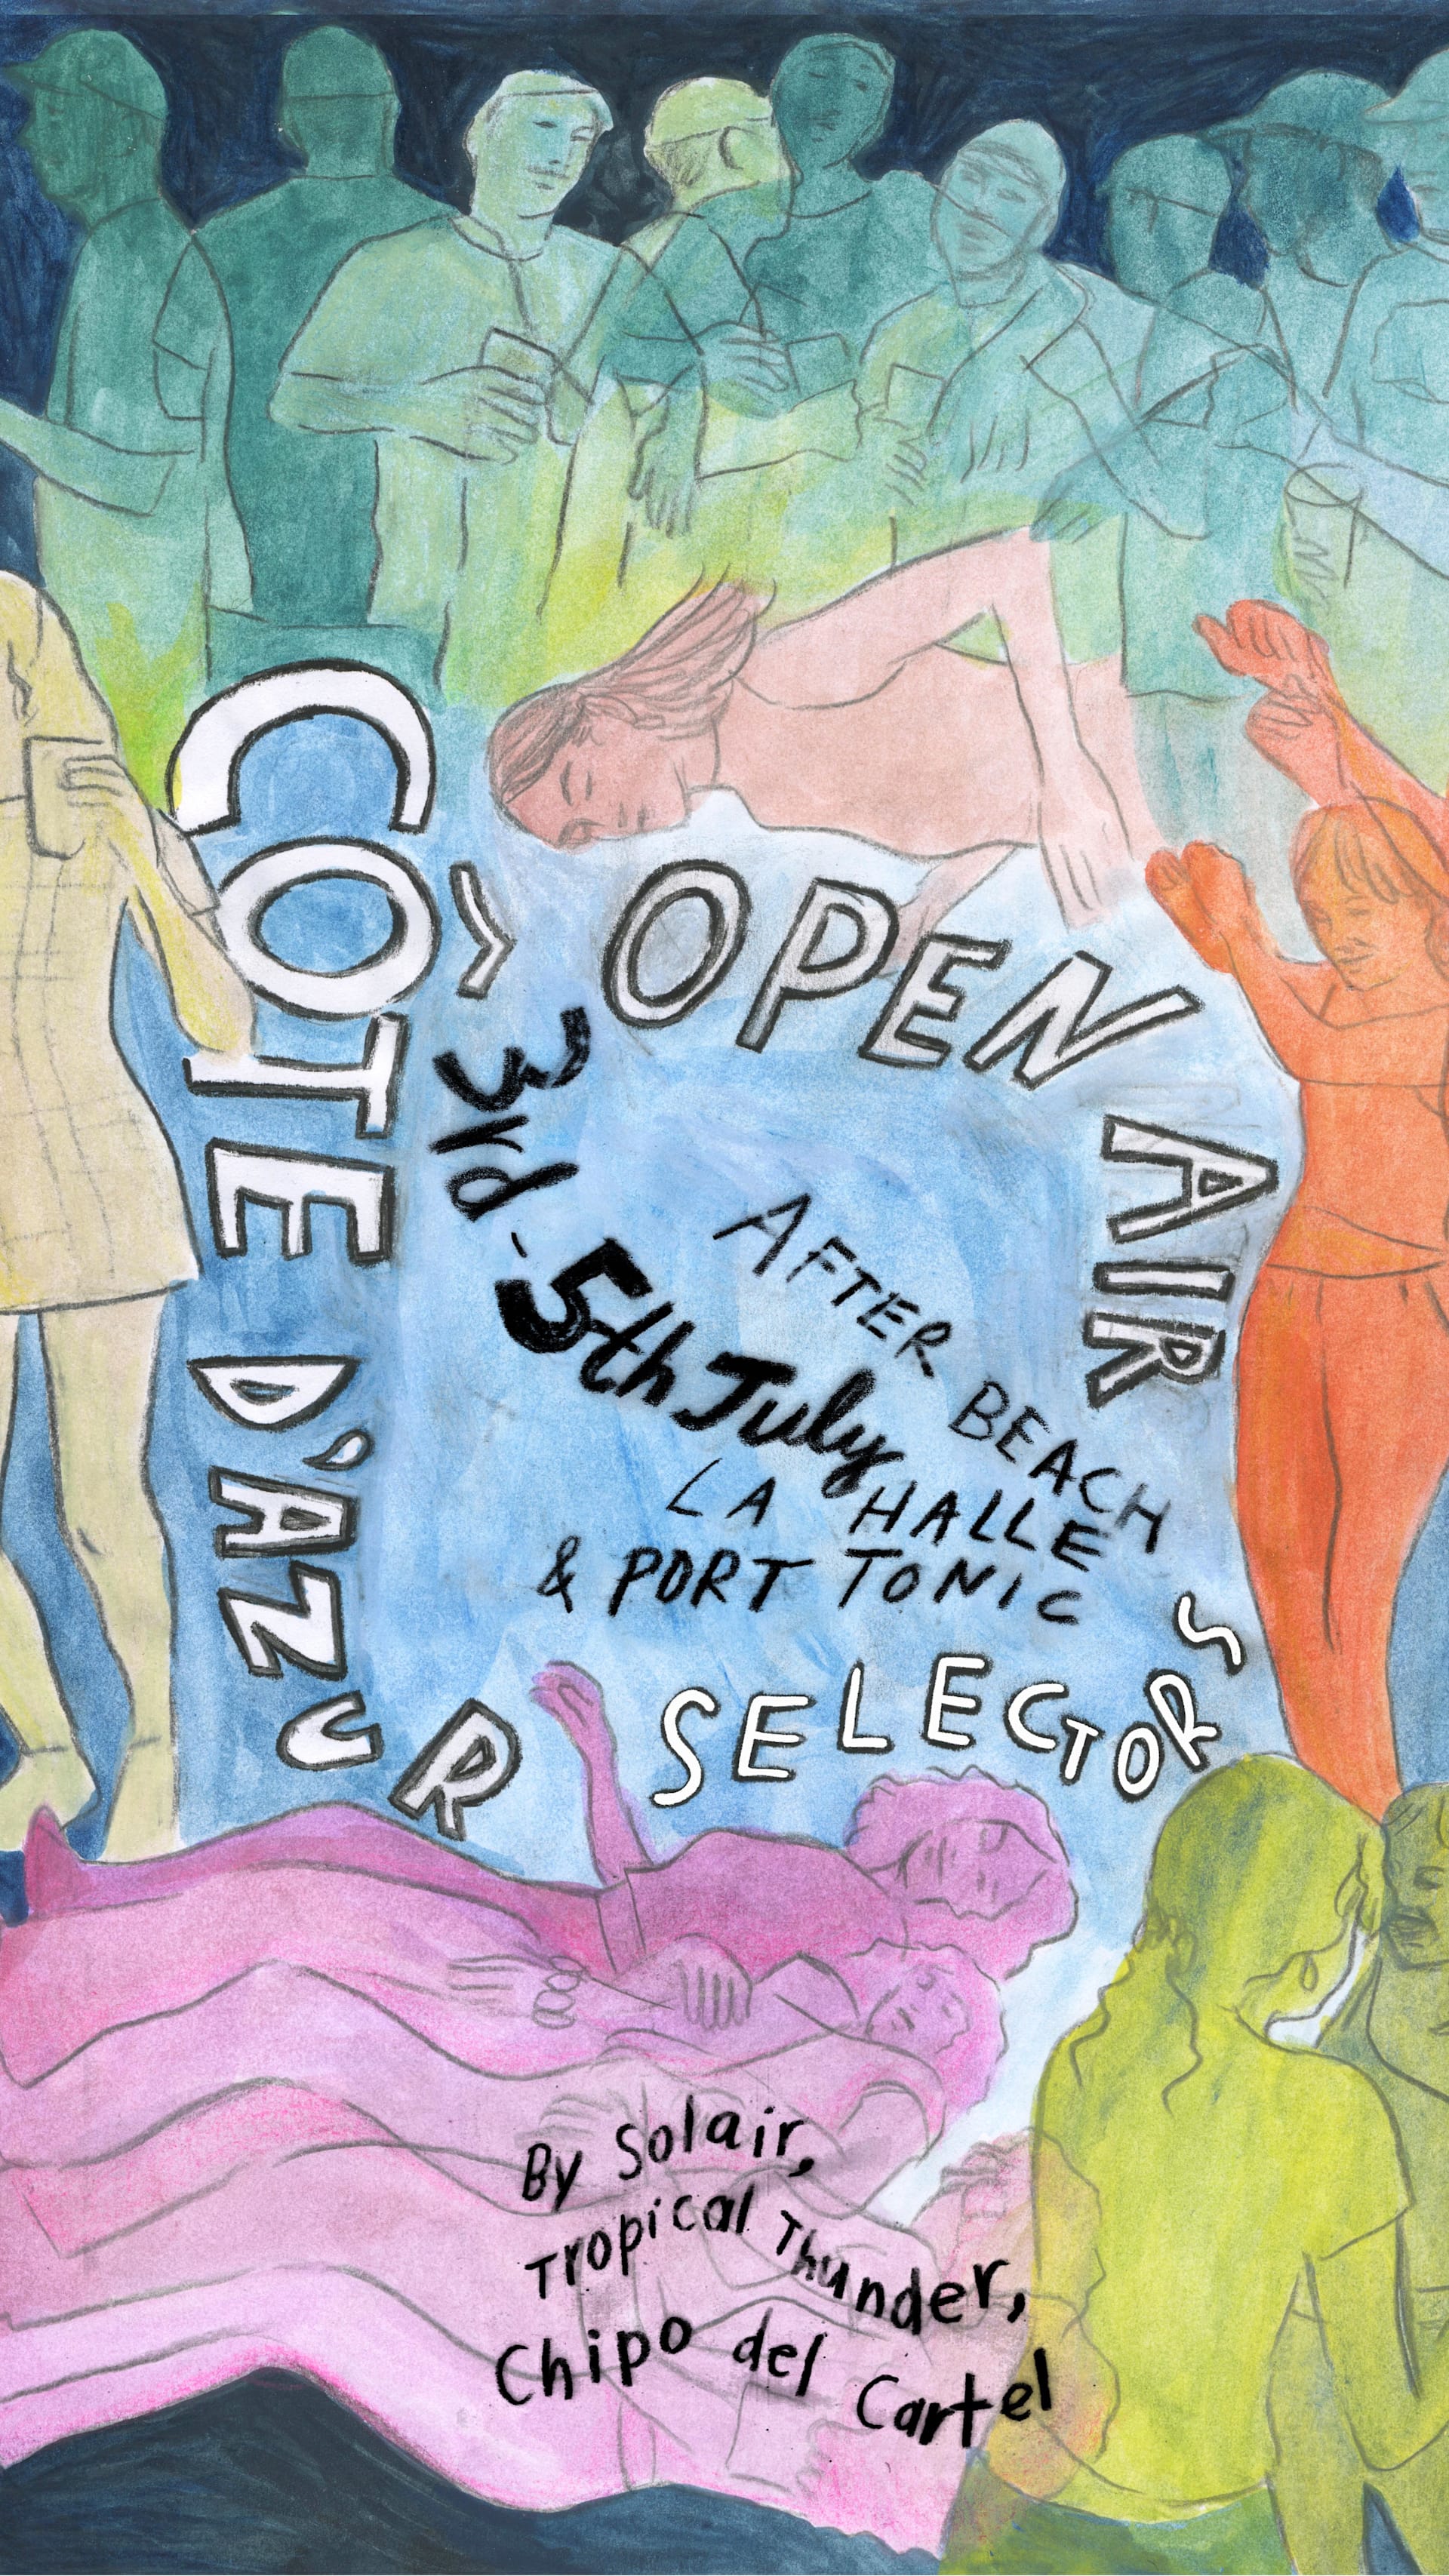 CÔTE D'AZUR
OPEN AIR
3rd - 5th July
AFTER BEACH
LA HALLE
& PORT TONIC
SELECTORS
By Solair,
Tropical Thunder,
Chipo del Cartel